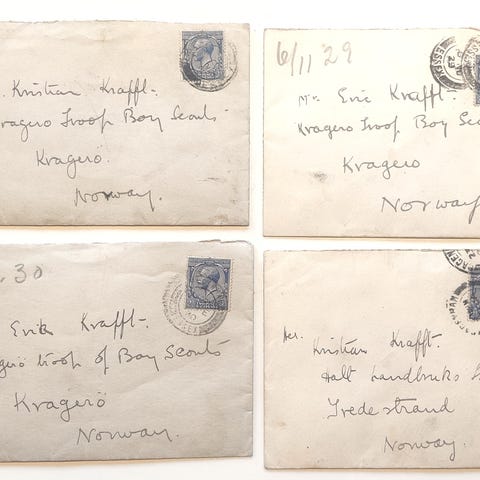 Kristian Krafft.
Kragerö Troop Boy Scouts
Kragerö.
Norway.
6/11 29
Mr. Eric Krafft.
Kragero Troop Boy Sco
Kragero
Norway
. 30
Erik Krafft.
gerö troop of Boy Scouts
Kragerö
Norway.
Her. Kristian Krafft.
Halt Landbruks S
Tvedestrand
Norway.